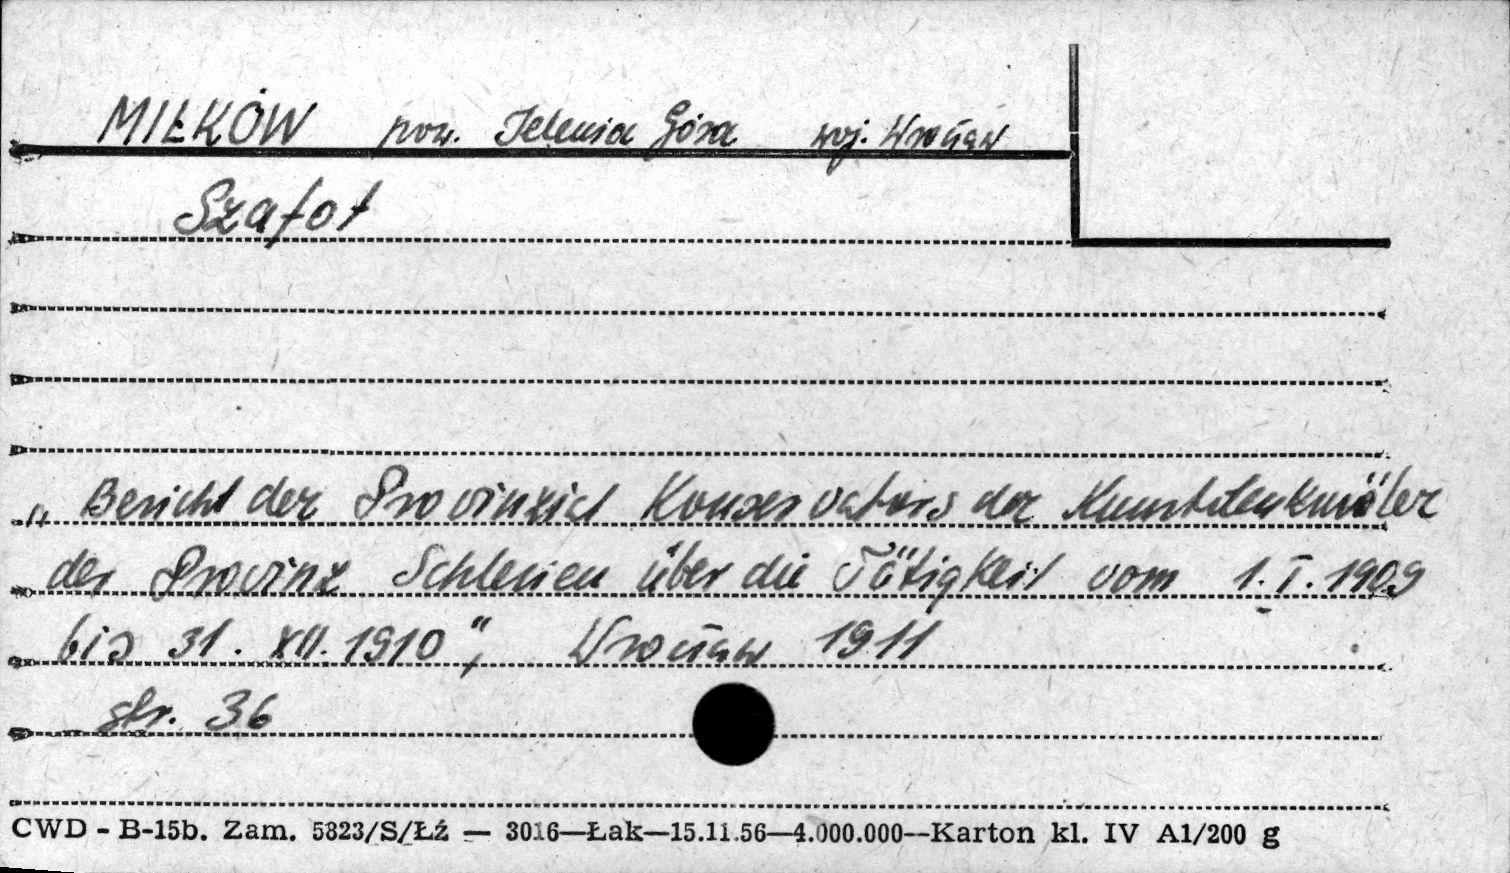 MIŁKÓW pow. Jelenia Góra woj. Wrocław
Szafot
„Bericht der Provinzial Konservators der Kunstdenkmäler
der Provinz Schlesien über die Tätigkeit vom 1.I.1909
bis 31. XII. 1910", Wrocław 1911
str. 36
CWD - B-15b. Zam. 5823/S/Łź — 3016—Łak—15.11.56—4.000.000—Karton kl. IV A1/200 g